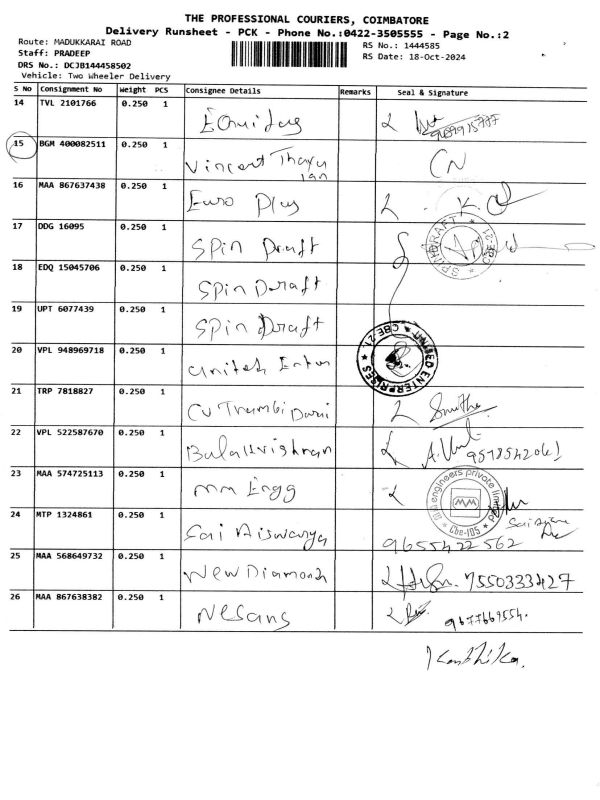 THE PROFESSIONAL COURIERS, COIMBATORE
Delivery Runsheet - PCK - Phone No.:0422-3505555 - Page No.:2
Route: MADUKKARAI ROAD
RS No.: 1444585
Staff: PRADEEP
RS Date: 18-Oct-2024
DRS No.: DCJB144458502
Vehicle: Two Wheeler Delivery
S No Consignment No Weight PCS Consignee Details Remarks Seal & Signature
14 TVL 2101766 0.250 1
15 BGM 400082511 0.250 1 Vincent CN
16 MAA 867637438 0.250 1 Euro Plus
17 DDG 16095 0.250 1 Spin Draft SPINDRAFT CBE-21
18 EDQ 15045706 0.250 1 Spin Draft
19 UPT 6077439 0.250 1 Spin Draft
20 VPL 948969718 0.250 1 United UNITED ENTERPRISES CBE-21
21 TRP 7818827 0.250 1 CV
22 VPL 522587670 0.250 1 Balakrishnan
23 MAA 574725113 0.250 1 MM Engg engineers private Cbe-105
24 MTP 1324861 0.250 1 Sai Aiswarya 9655422562
25 MAA 568649732 0.250 1 New Diamond 7550333427
26 MAA 867638382 0.250 1 Nesans 9677669554